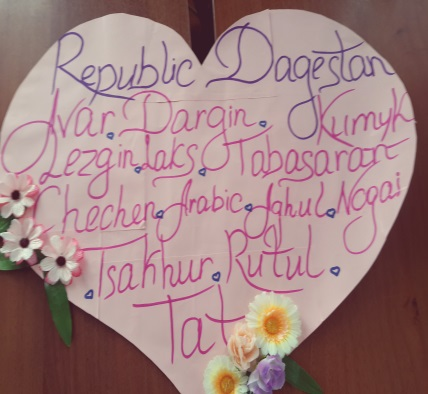 Republic Dagestan
Avar. Dargin. Kumyk
Lezgin. Laks. Tabasaran
Chechen. Arabic. Aghul. Nogai
. Tsakhur. Rutul.
Tat